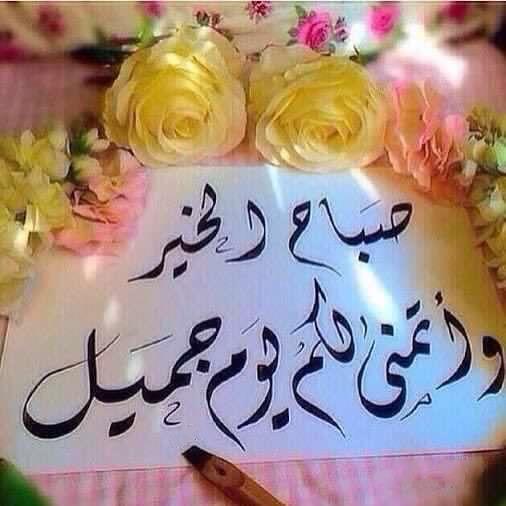 صباح الخير
وأتمنى لكم يوم جميل